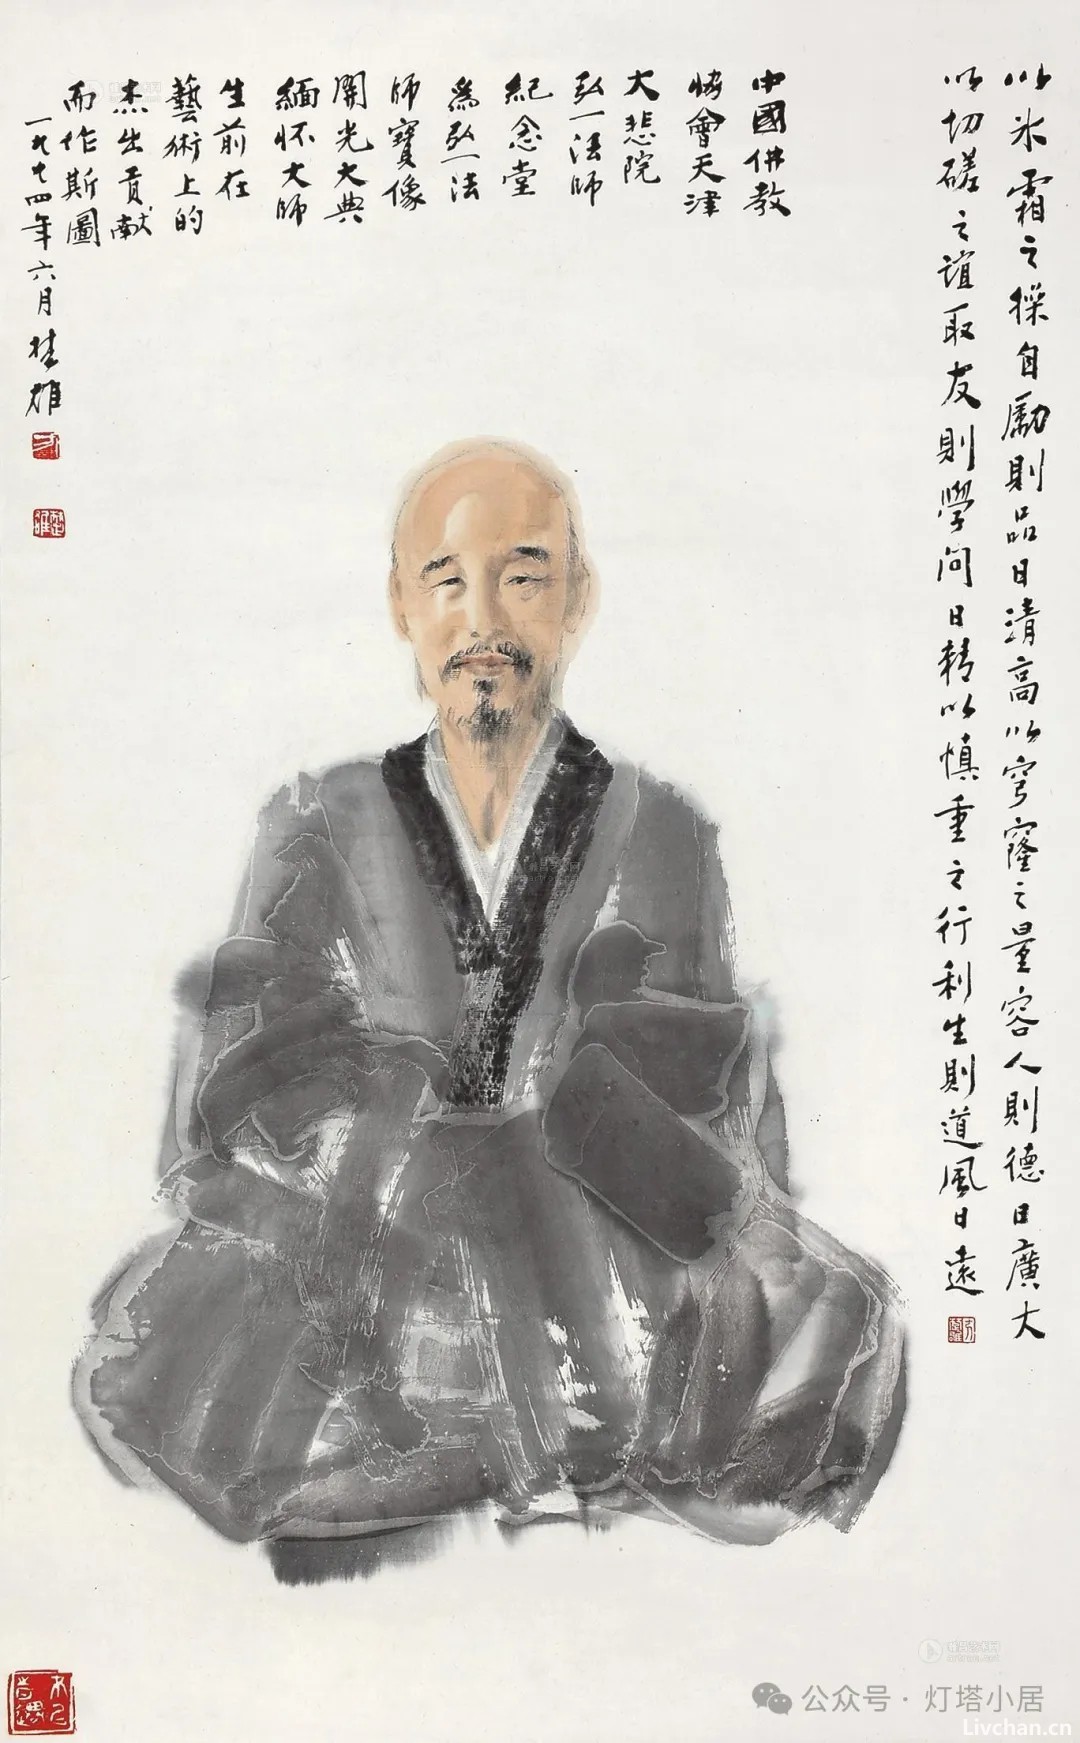 以冰霜之操自勵則品日清高以穹窿之量容人則德日廣大
以切磋之誼取友則學問日精以慎重之行利生則道風日遠
中國佛教
協會天津
大悲院
弘一法師
紀念堂
為弘一法
師寶像
開光大典
緬怀大師
生前在
藝術上的
杰出貢献
而作斯圖
一九九四年六月楚雄
公众号·灯塔小居
Livchan.cn